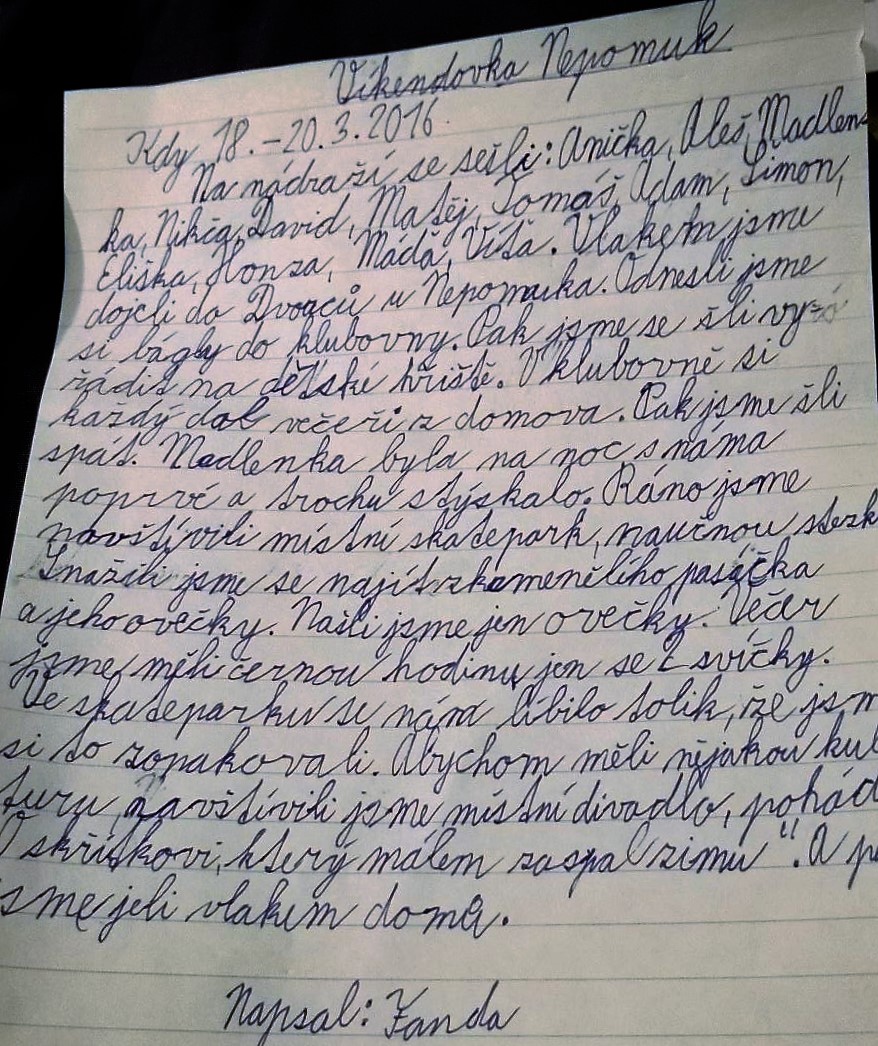 Víkendovka Nepomuk
Kdy 18.-20.3.2016
Na nádraží se sešli: Anička, Aleš, Madlen
ka, Nikča, David, Matěj, Tomáš, Adam, Šimon,
Eliška, Honza, Máďa, Víťa. Vlakem jsme
dojeli do Dvorců u Nepomuka. Odnesli jsme
si bágly do klubovny. Pak jsme se šli vy
řádit na dětské hřiště. V klubovně si
každý dal večeři z domova. Pak jsme šli
spát. Madlenka byla na noc s náma
poprvé a trochu stýskalo. Ráno jsme
navštívili místní skatepark, naučnou stezk
Snažili jsme se najít zkamenělího pasáčka
a jeho ovečky. Našli jsme jen ovečky. Večer
jsme měli černou hodinu jen se 2 svíčky.
Ve skateparku se nám líbilo tolik, že jsm
si to zopakovali. Abychom měli nějakou kul
turu navštívili jsme místní divadlo, pohád
O skřítkovi, který málem zaspal zimu". A p
jsme jeli vlakem domů.
Napsal: Fanda